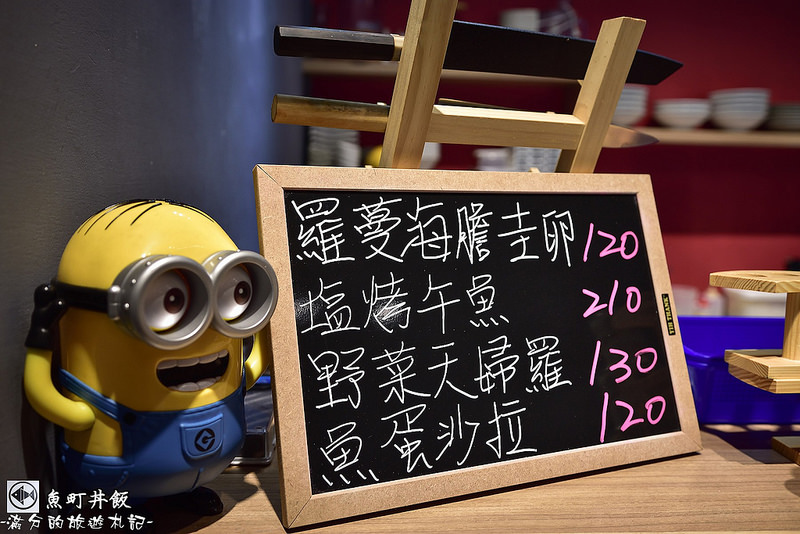 羅蔓海膽圭卵 120
塩烤午魚 210
野菜天婦羅 130
魚蛋沙拉 120
魚町丼飯
-滿分的旅遊札記-